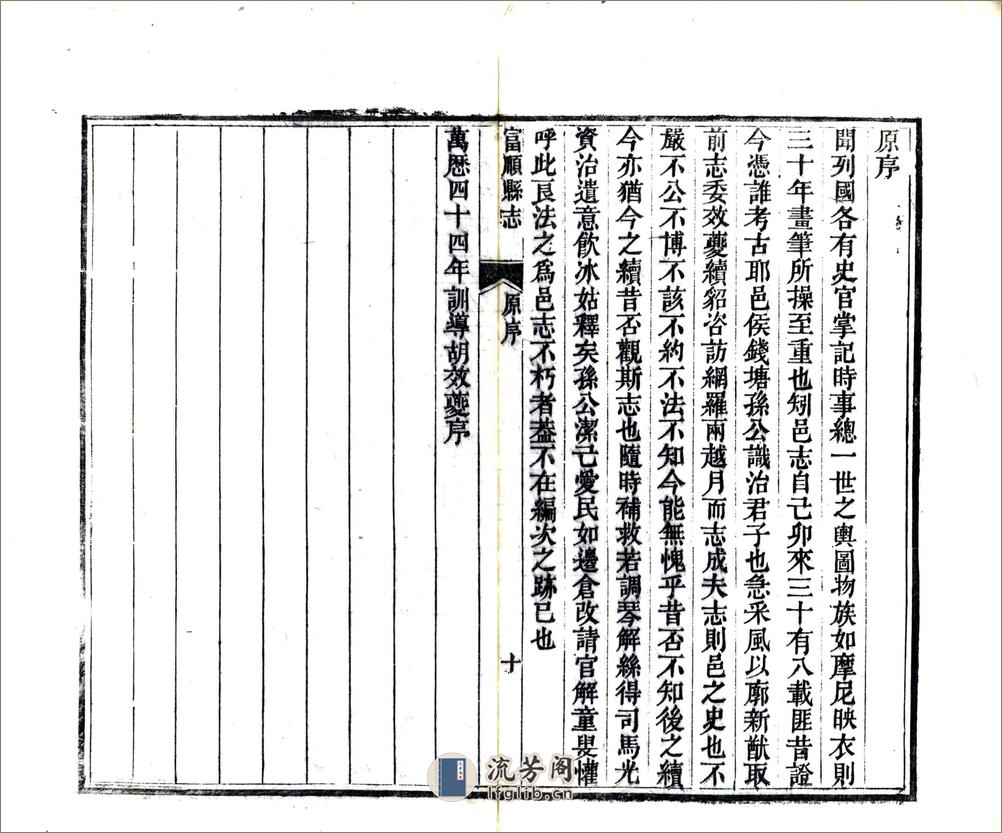 原序
聞列國各有史官掌記時事總一世之輿圖物族如摩尼映衣則
三十年畫筆所操至重也矧邑志自己卯來三十有八載匪昔證
今憑誰考古耶邑侯錢塘孫公識治君子也急采風以廓新猷取
前志委效夔續貂咨訪網羅兩越月而志成夫志則邑之史也不
嚴不公不博不該不約不法不知今能無愧乎昔否不知後之續
今亦猶今之續昔否觀斯志也隨時補救若調琴解絲得司馬光
資治遺意飲冰姑釋矣孫公潔己愛民如邊倉改請官解童叟懽
呼此良法之為邑志不朽者葢不在編次之跡已也
富順縣志 原序 十
萬歷四十四年訓導胡效夔序
流芳阁
lfglib.cn